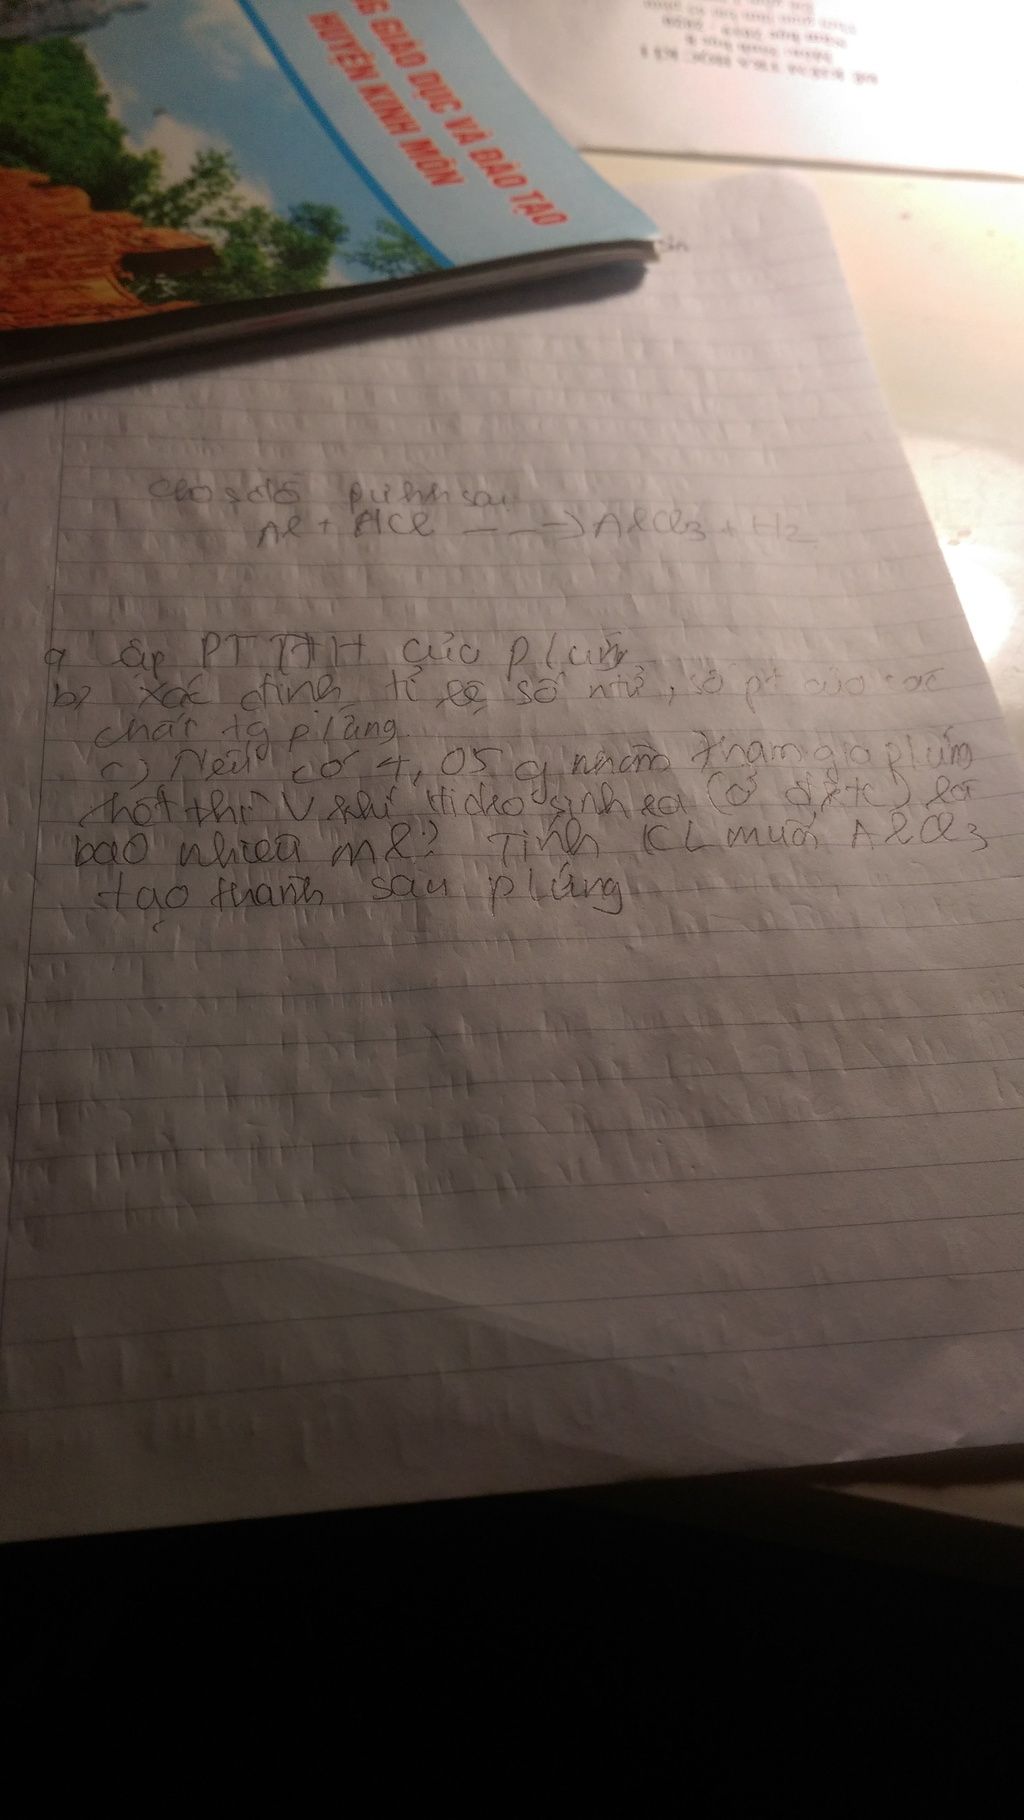 NG GIÁO DỤC VÀ ĐÀO TẠO
HUYỆN KINH MÔN
Cho sơ đồ pứ hh sau
Al + HCl ---> AlCl3 + H2
a Lập PTHH của p/ứng
b) Xác định tỉ lệ số ntử, số pt của các
chất tg p/ứng.
c) Nếu có 4,05 g nhôm tham gia p/ứng
hết thì V khí Hidro sinh ra (ở đktc) là
bao nhiêu ml? Tính KL muối AlCl3
tạo thành sau p/ứng